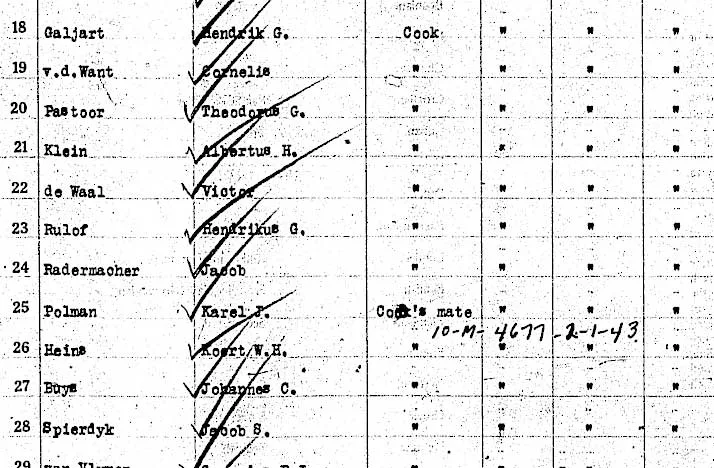 18 Galjart Hendrik G. Cook " " "
19 v.d.Want Cornelis " " " "
20 Pastoor Theodorus G. " " " "
21 Klein Albertus H. " " " "
22 de Waal Victor " " " "
23 Rulof Hendrikus G. " " " "
24 Radermacher Jacob " " " "
25 Polman Karel J. Cook's mate " " "
10-M-4677-2-1-43
26 Heins Koert W.H. " " " "
27 Buys Johannes C. " " " "
28 Spierdyk Jacob S. " " " "
29 van